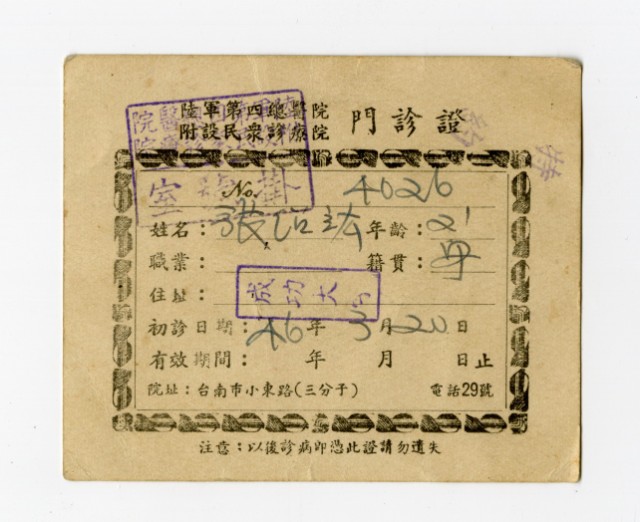 陸軍第四總醫院
附設民眾診療院
門診證
掛號室
No. 4026
姓名：張 年齡：21
職業： 籍貫：
成功大
住址：
初診日期：46年3月20日
有效期間： 年 月 日止
院址：台南市小東路(三分子) 電話29號
注意：以後診病即憑此證請勿遺失